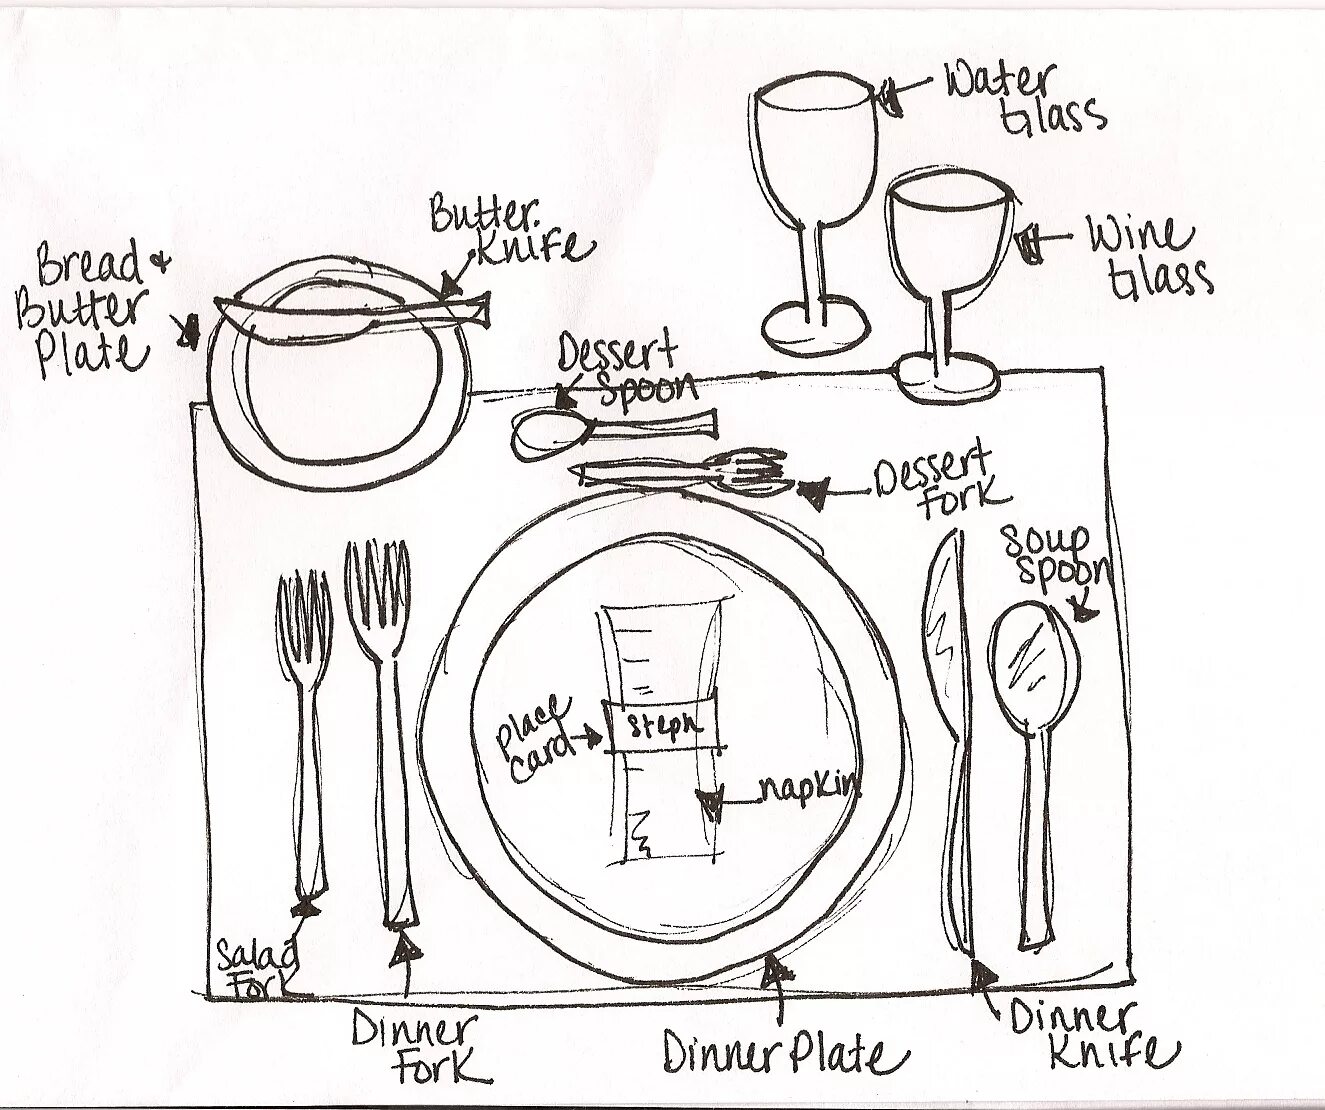 Water
Glass
Butter
Knife
Wine
Glass
Bread &
Butter
Plate
Dessert
Spoon
Dessert
Fork
Soup
Spoon
Place
Card
Steph
napkin
Salad
Fork
Dinner
Fork
Dinner Plate
Dinner
Knife